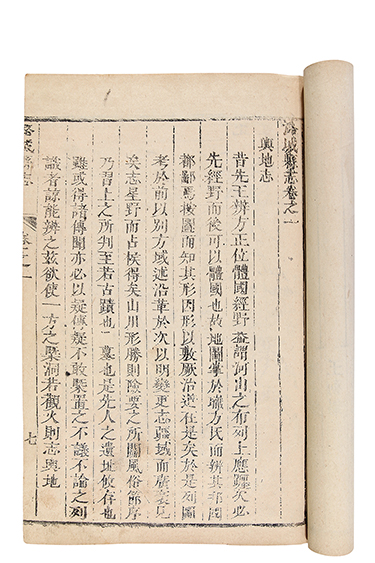 潞城縣志卷之一
輿地志
昔先王辨方正位體國經野蓋謂河山之布列上應躔次必
先經野而後可以體國也故地圖掌於職方氏而辨其邦國
都鄙焉按圖而知其形因形以敷厥治道在是矣於是列圖
考於前以別方域述沿革於次以明變更志疆域而廣袤見
矣志星野而占候得矣山川形勝則險要之所關風俗節序
乃習上之所判至若古蹟也一墓也是先人之遺址攸存也
雖或得諸傳聞亦必以疑傳疑不敢槩置之不議不論之列
識者諒能辨之茲欲使一方之槩洞若觀火則志輿地
潞城縣志
卷之一
七